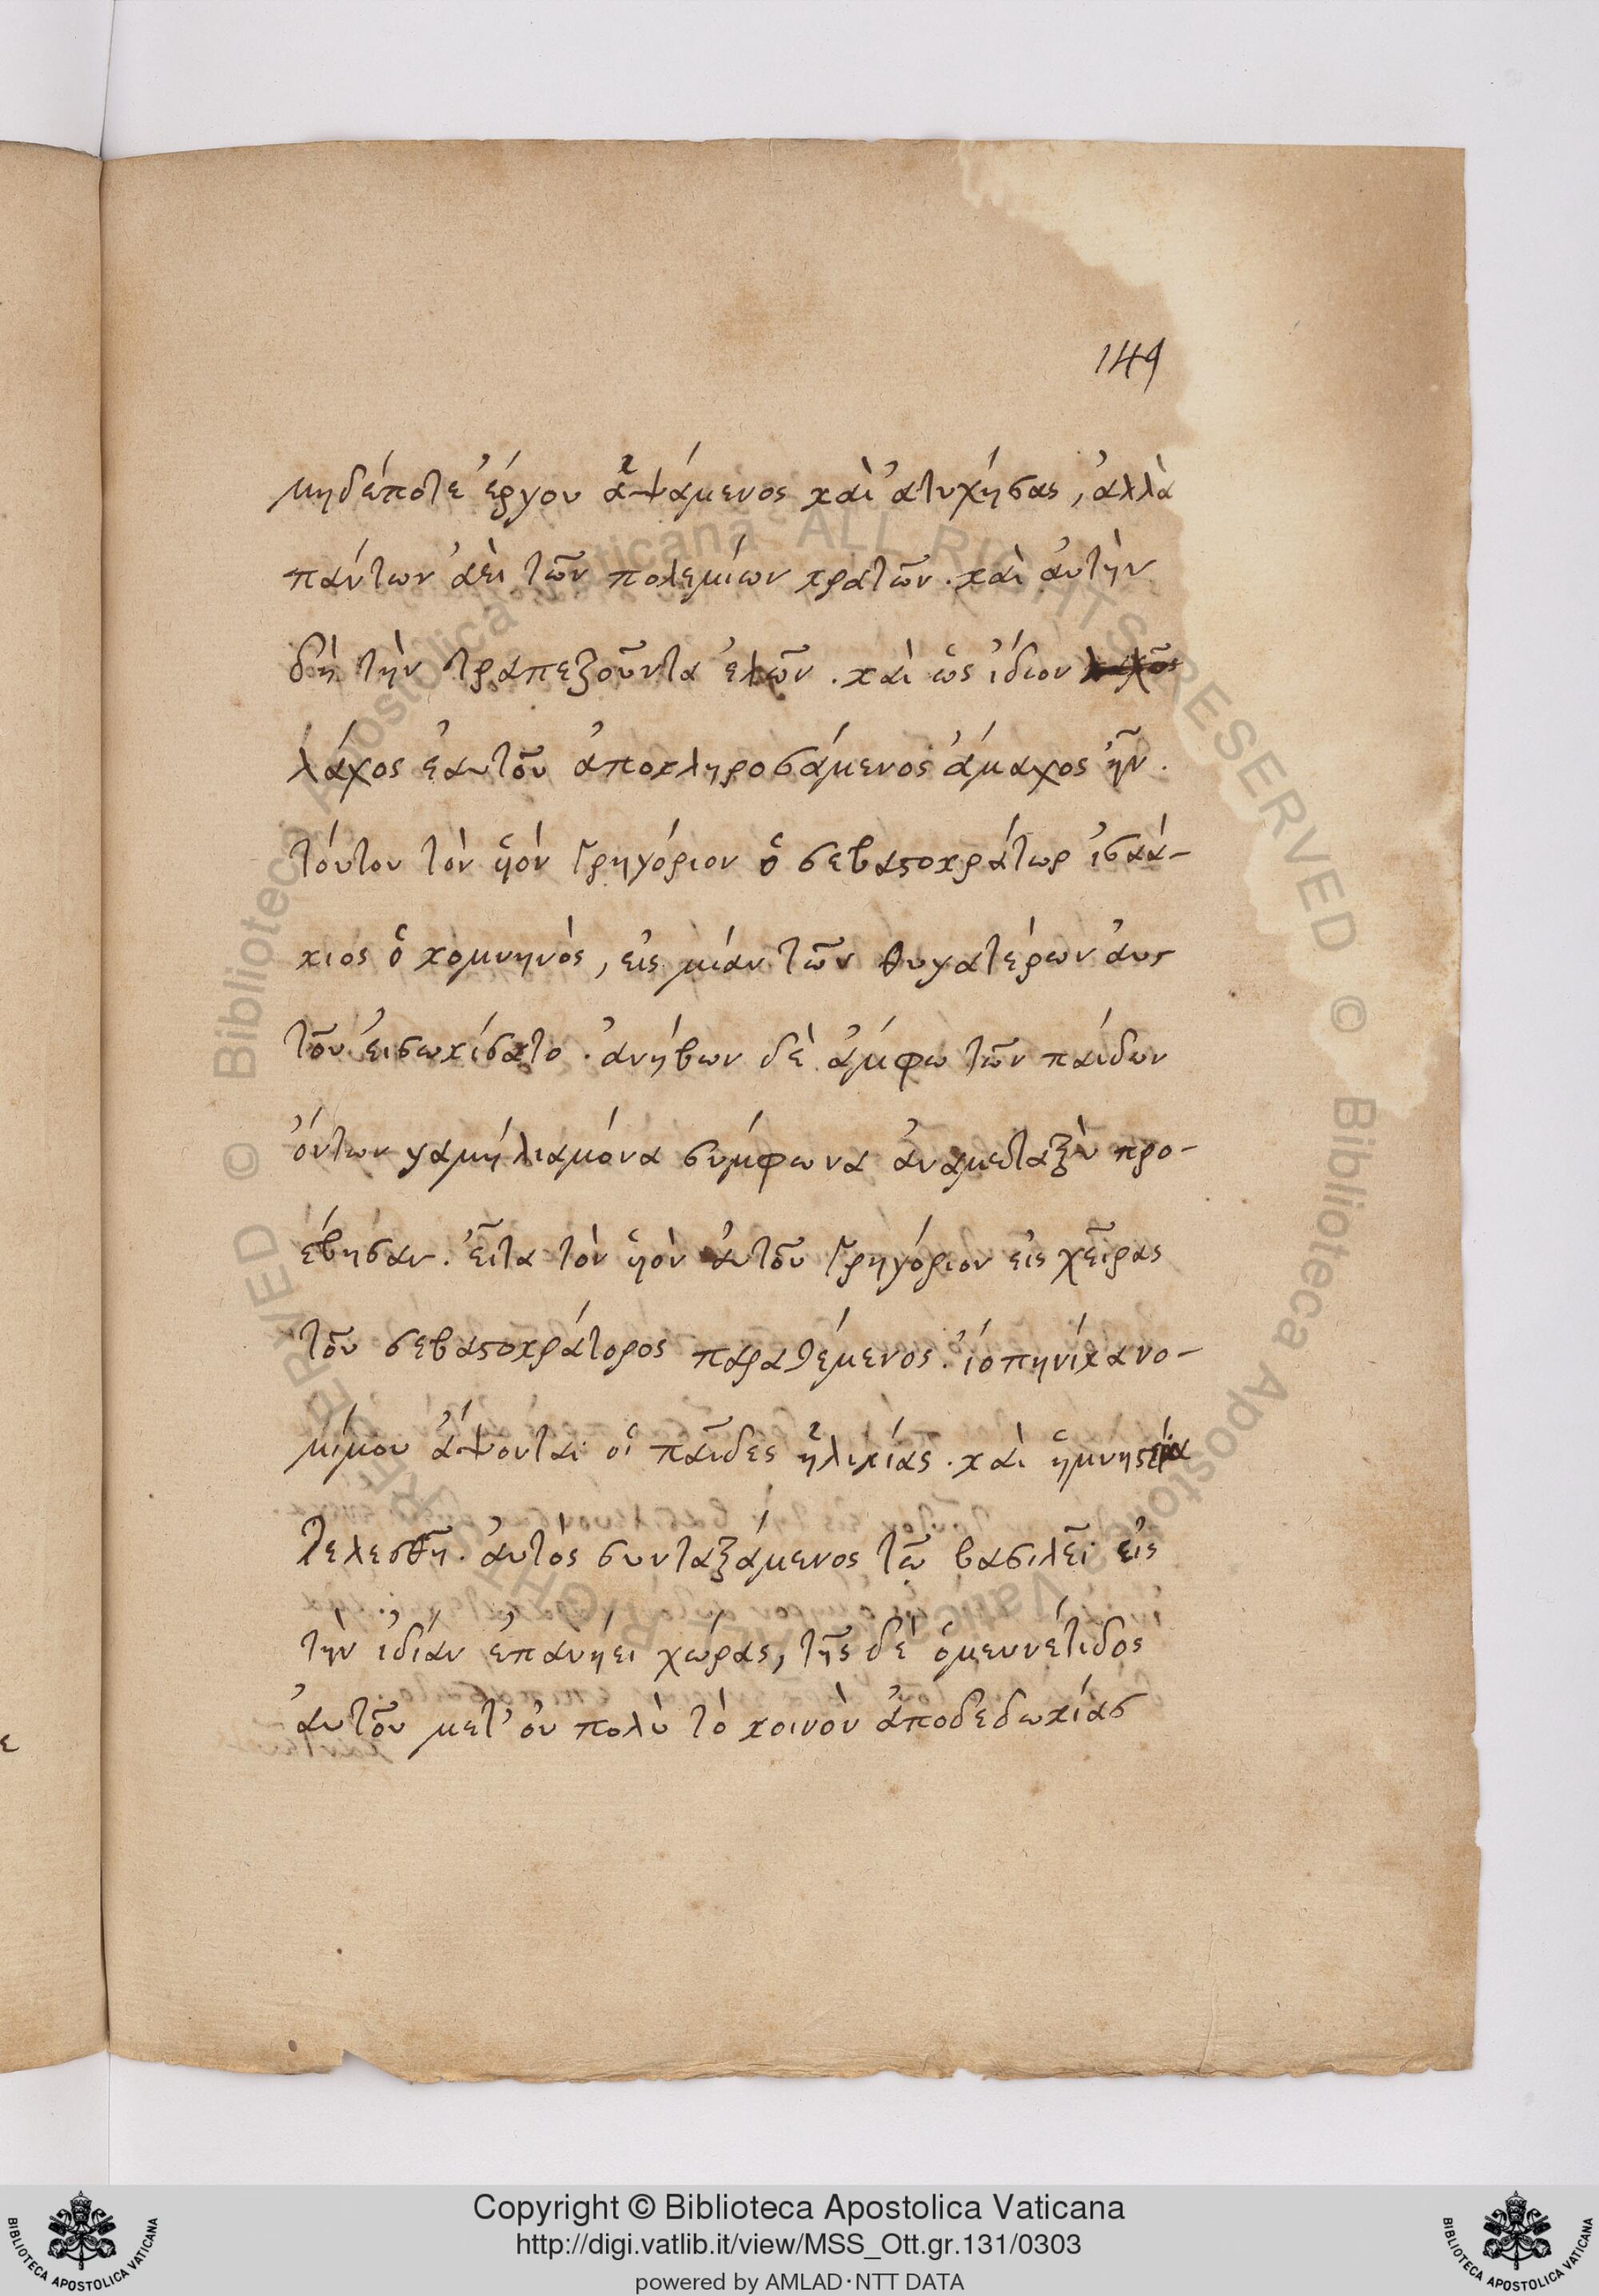 149
μηδέποτε ἔργου ἁψάμενος καὶ ἀτυχήσας, ἀλλὰ
πάντων ἀεὶ τῶν πολεμίων κρατῶν. καὶ ἀυτὴν
δὴ τὴν τραπεζοῦντα ἑλῶν. καὶ ὡς ἴδιον
λάχος ἑαυτοῦ ἀποκληροσάμενος ἄμαχος ἦν.
τόυτου τὸν ἡόν Γρηγόριον ὁ σεβαστοκράτωρ ἰσαά-
κιος ὁ κομνηνὸς, εἰς μίαν τῶν θυγατέρων ἀυ
τοῦ ἐισωκίσατο. ἀνήβων δὲ ἄμφω τῶν παίδων
ὄντων γαμήλια μόνα σύμφωνα ἀναμεταξὺ προ-
έβησαν. εἶτα τὸν ἡὸν ἀυτοῦ Γρηγόριον εἰς χεῖρας
τοῦ σεβαστοκράτορος παραθέμενος. ἰόπηνίκα νο-
μίμου ἅψονται οἱ παῖδες ἡλικίας. καὶ ἡ μνηστεία
τελεσθῆ. ἀυτὸς συνταξάμενος τῶ βασιλεῖ εἰς
τὴν ἰδίαν ἐπανήει χώρας, τῆς δὲ ὁμευνέτιδος
ἀυτοῦ μετ' ὀυ πολὺ τὸ κοινὸν ἀποδεδωκίας
Copyright © Biblioteca Apostolica Vaticana
http://digi.vatlib.it/view/MSS_Ott.gr.131/0303
powered by AMLAD·NTT DATA
BIBLIOTECA APOSTOLICA VATICANA
BIBLIOTECA APOSTOLICA VATICANA